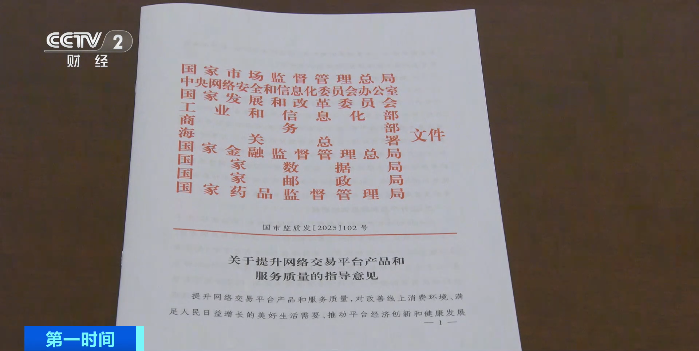 CCTV 2
财经
国家市场监督管理总局
中央网络安全和信息化委员会办公室
国家发展和改革委员会
工业和信息化部
商务部
海关总署
文件
国家金融监督管理总局
国家数据局
国家邮政局
国家药品监督管理局
国市监质发〔2025〕102号
关于提升网络交易平台产品和
服务质量的指导意见
提升网络交易平台产品和服务质量，对改善线上消费环境、满
足人民日益增长的美好生活需要、推动平台经济创新和健康发展
— 1 —
第一时间